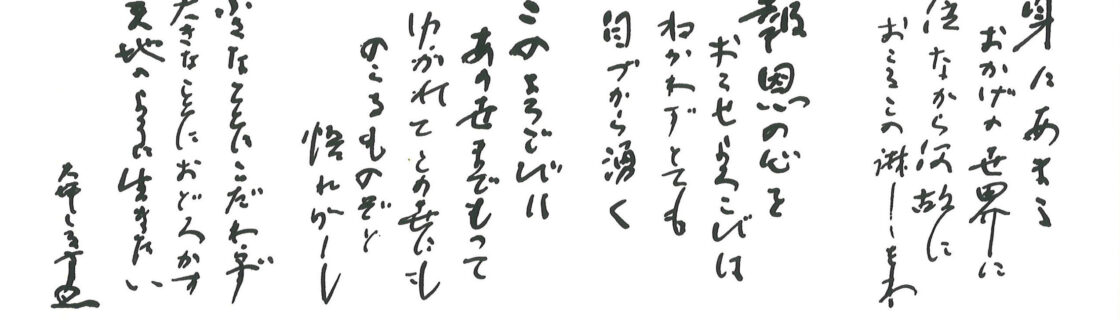 身にあまる
おかげの世界に
住ながら何故に
おこるこの淋しさわ
報恩の心を
おこせよろこびは
ねがわずとても
自づから湧く
このよろこびは
あの世までもつて
ゆかれてこの世にも
のこるものぞと
悟れかーし
ふさなことにこだわらず
大きなことにおどろかず
天地のように生きたい